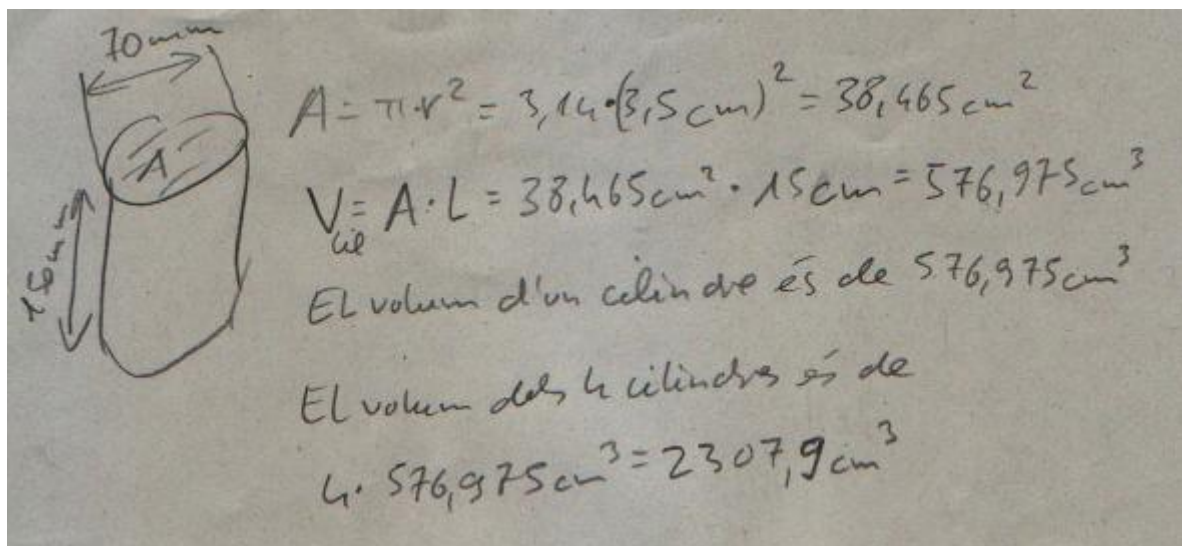 70mm
A = π·r² = 3,14·(3,5cm)² = 38,465cm²
A
V_cil = A·L = 38,465cm² · 15cm = 576,975cm³
El volum d'un cilindre és de 576,975cm³
El volum dels 4 cilindres és de
4· 576,975cm³ = 2307,9cm³